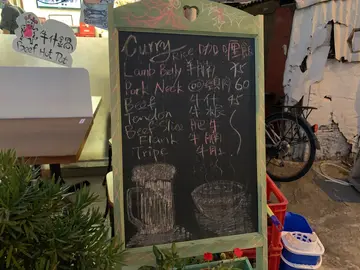 牛什鍋
Beef Hot Pot
Curry Rice 咖哩飯
Lamb Belly 牛腩 75
Pork Neck 豬頸肉 60
Beef 牛什 45
Tendon 牛
Beef Slice 肥牛
Flank 牛腩
Tripe 牛肚